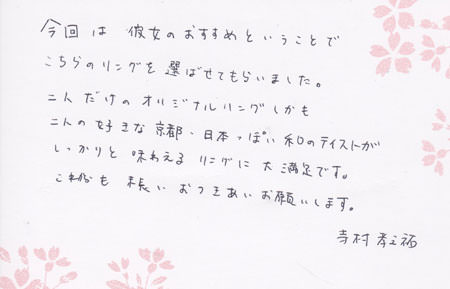 今回は 彼女のおすすめということで
こちらのリングを選ばせてもらいました。
二人だけのオリジナルリングしかも
二人の好きな京都・日本っぽい和のテイストが
しっかりと味わえるリングに大満足です。
これからも末長いおつきあいお願いします。
寺村